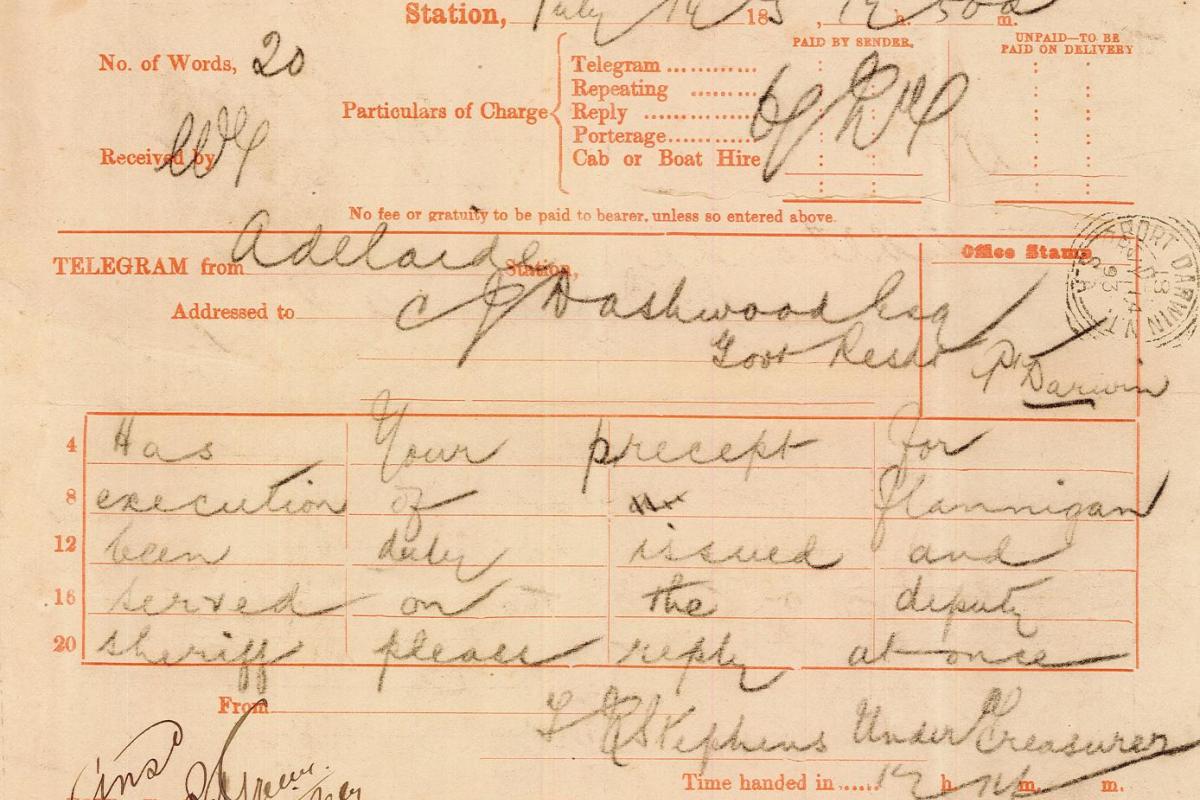 Station, July 14 18 3, 12 h. 50 a m.
PAID BY SENDER. UNPAID—TO BE PAID ON DELIVERY
No. of Words, 20
Particulars of Charge
Telegram
Repeating
Reply
Porterage
Cab or Boat Hire
Received by
No fee or gratuity to be paid to bearer, unless so entered above.
TELEGRAM from Adelaide Station,
Office Stamp
PORT DARWIN
Addressed to C J Dashwood Esq
Govt Resdt Pt Darwin
4 Has Your precept for
8 execution of Mr Flannigan
12 been duly issued and
16 served on the deputy
20 sheriff please reply at once
From
Stephens Under Treasurer
Time handed in 12 h. m. m.